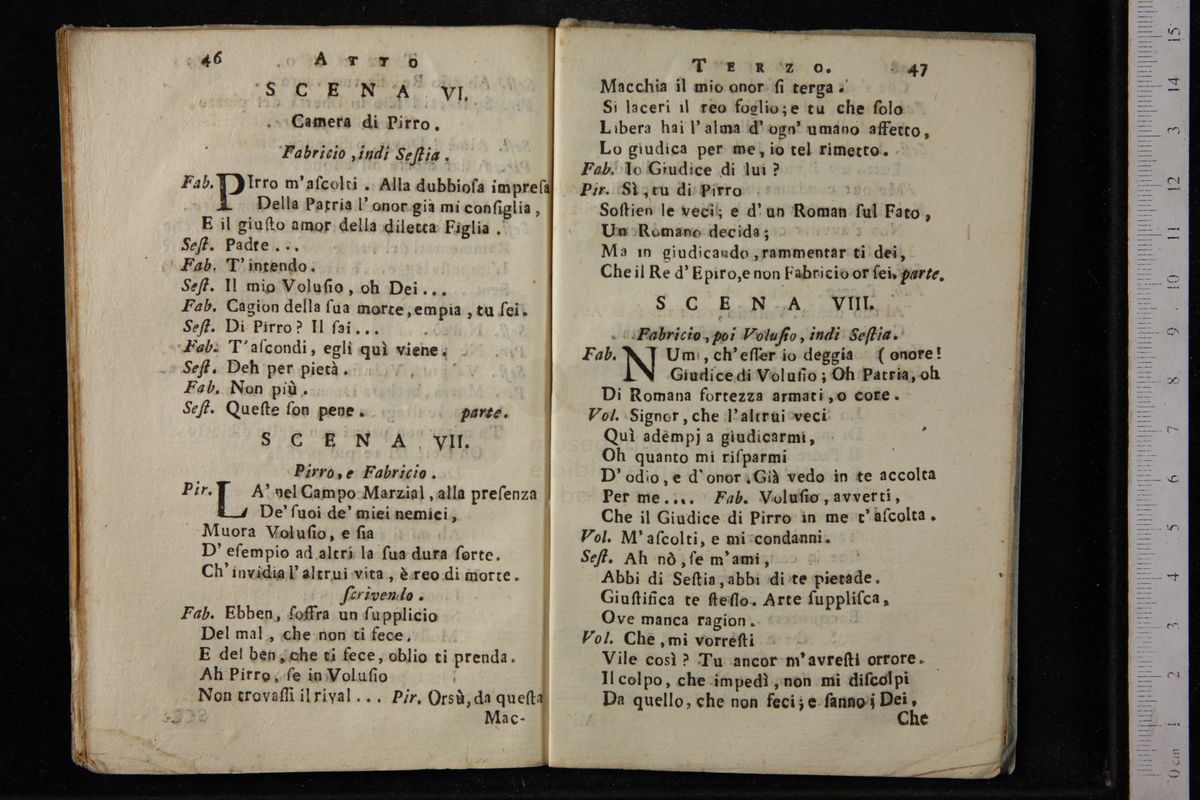 46 ATTO
SCENA VI.
Camera di Pirro.
Fabricio, indi Seſtia.
Fab. PIrro m'aſcolti. Alla dubbioſa impreſa
Della Patria l'onor già mi conſiglia,
E il giuſto amor della diletta Figlia.
Seſt. Padre...
Fab. T'intendo.
Seſt. Il mio Voluſio, oh Dei...
Fab. Cagion della ſua morte, empia, tu ſei.
Seſt. Di Pirro? Il ſai...
Fab. T'aſcondi, egli quì viene.
Seſt. Deh per pietà.
Fab. Non più.
Seſt. Queſte ſon pene. parte.
SCENA VII.
Pirro, e Fabricio.
Pir. LA' nel Campo Marzial, alla preſenza
De' ſuoi de' miei nemici,
Muora Voluſio, e ſia
D' eſempio ad altri la ſua dura ſorte.
Ch' invidia l'altrui vita, è reo di morte.
ſcrivendo.
Fab. Ebben, ſoffra un ſupplicio
Del mal, che non ti fece,
E del ben, che ti fece, oblio ti prenda.
Ah Pirro, ſe in Voluſio
Non trovaſſi il rival... Pir. Orsù, da queſta
Mac-
TERZO. 47
Macchia il mio onor ſi terga.
Si laceri il reo foglio; e tu che ſolo
Libera hai l'alma d'ogn' umano affetto,
Lo giudica per me, io tel rimetto.
Fab. Io Giudice di lui?
Pir. Sì, tu di Pirro
Soſtien le veci; e d'un Roman ſul Fato,
Un Romano decida;
Ma in giudicando, rammentar ti dei,
Che il Re d'Epiro, e non Fabricio or ſei. parte.
SCENA VIII.
Fabricio, poi Voluſio, indi Seſtia.
Fab. NUmi, ch'eſſer io deggia (onore!
Giudice di Voluſio; Oh Patria, oh
Di Romana fortezza armati, o core.
Vol. Signor, che l'altrui veci
Quì adempj a giudicarmi,
Oh quanto mi riſparmi
D'odio, e d'onor. Già vedo in te accolta
Per me.... Fab. Voluſio, avverti,
Che il Giudice di Pirro in me t'aſcolta.
Vol. M'aſcolti, e mi condanni.
Seſt. Ah nò, ſe m'ami,
Abbi di Seſtia, abbi di te pietade.
Giuſtifica te ſteſſo. Arte ſuppliſca,
Ove manca ragion.
Vol. Che, mi vorreſti
Vile così? Tu ancor m'avreſti orrore.
Il colpo, che impedì, non mi diſcolpi
Da quello, che non feci; e ſanno i Dei,
Che